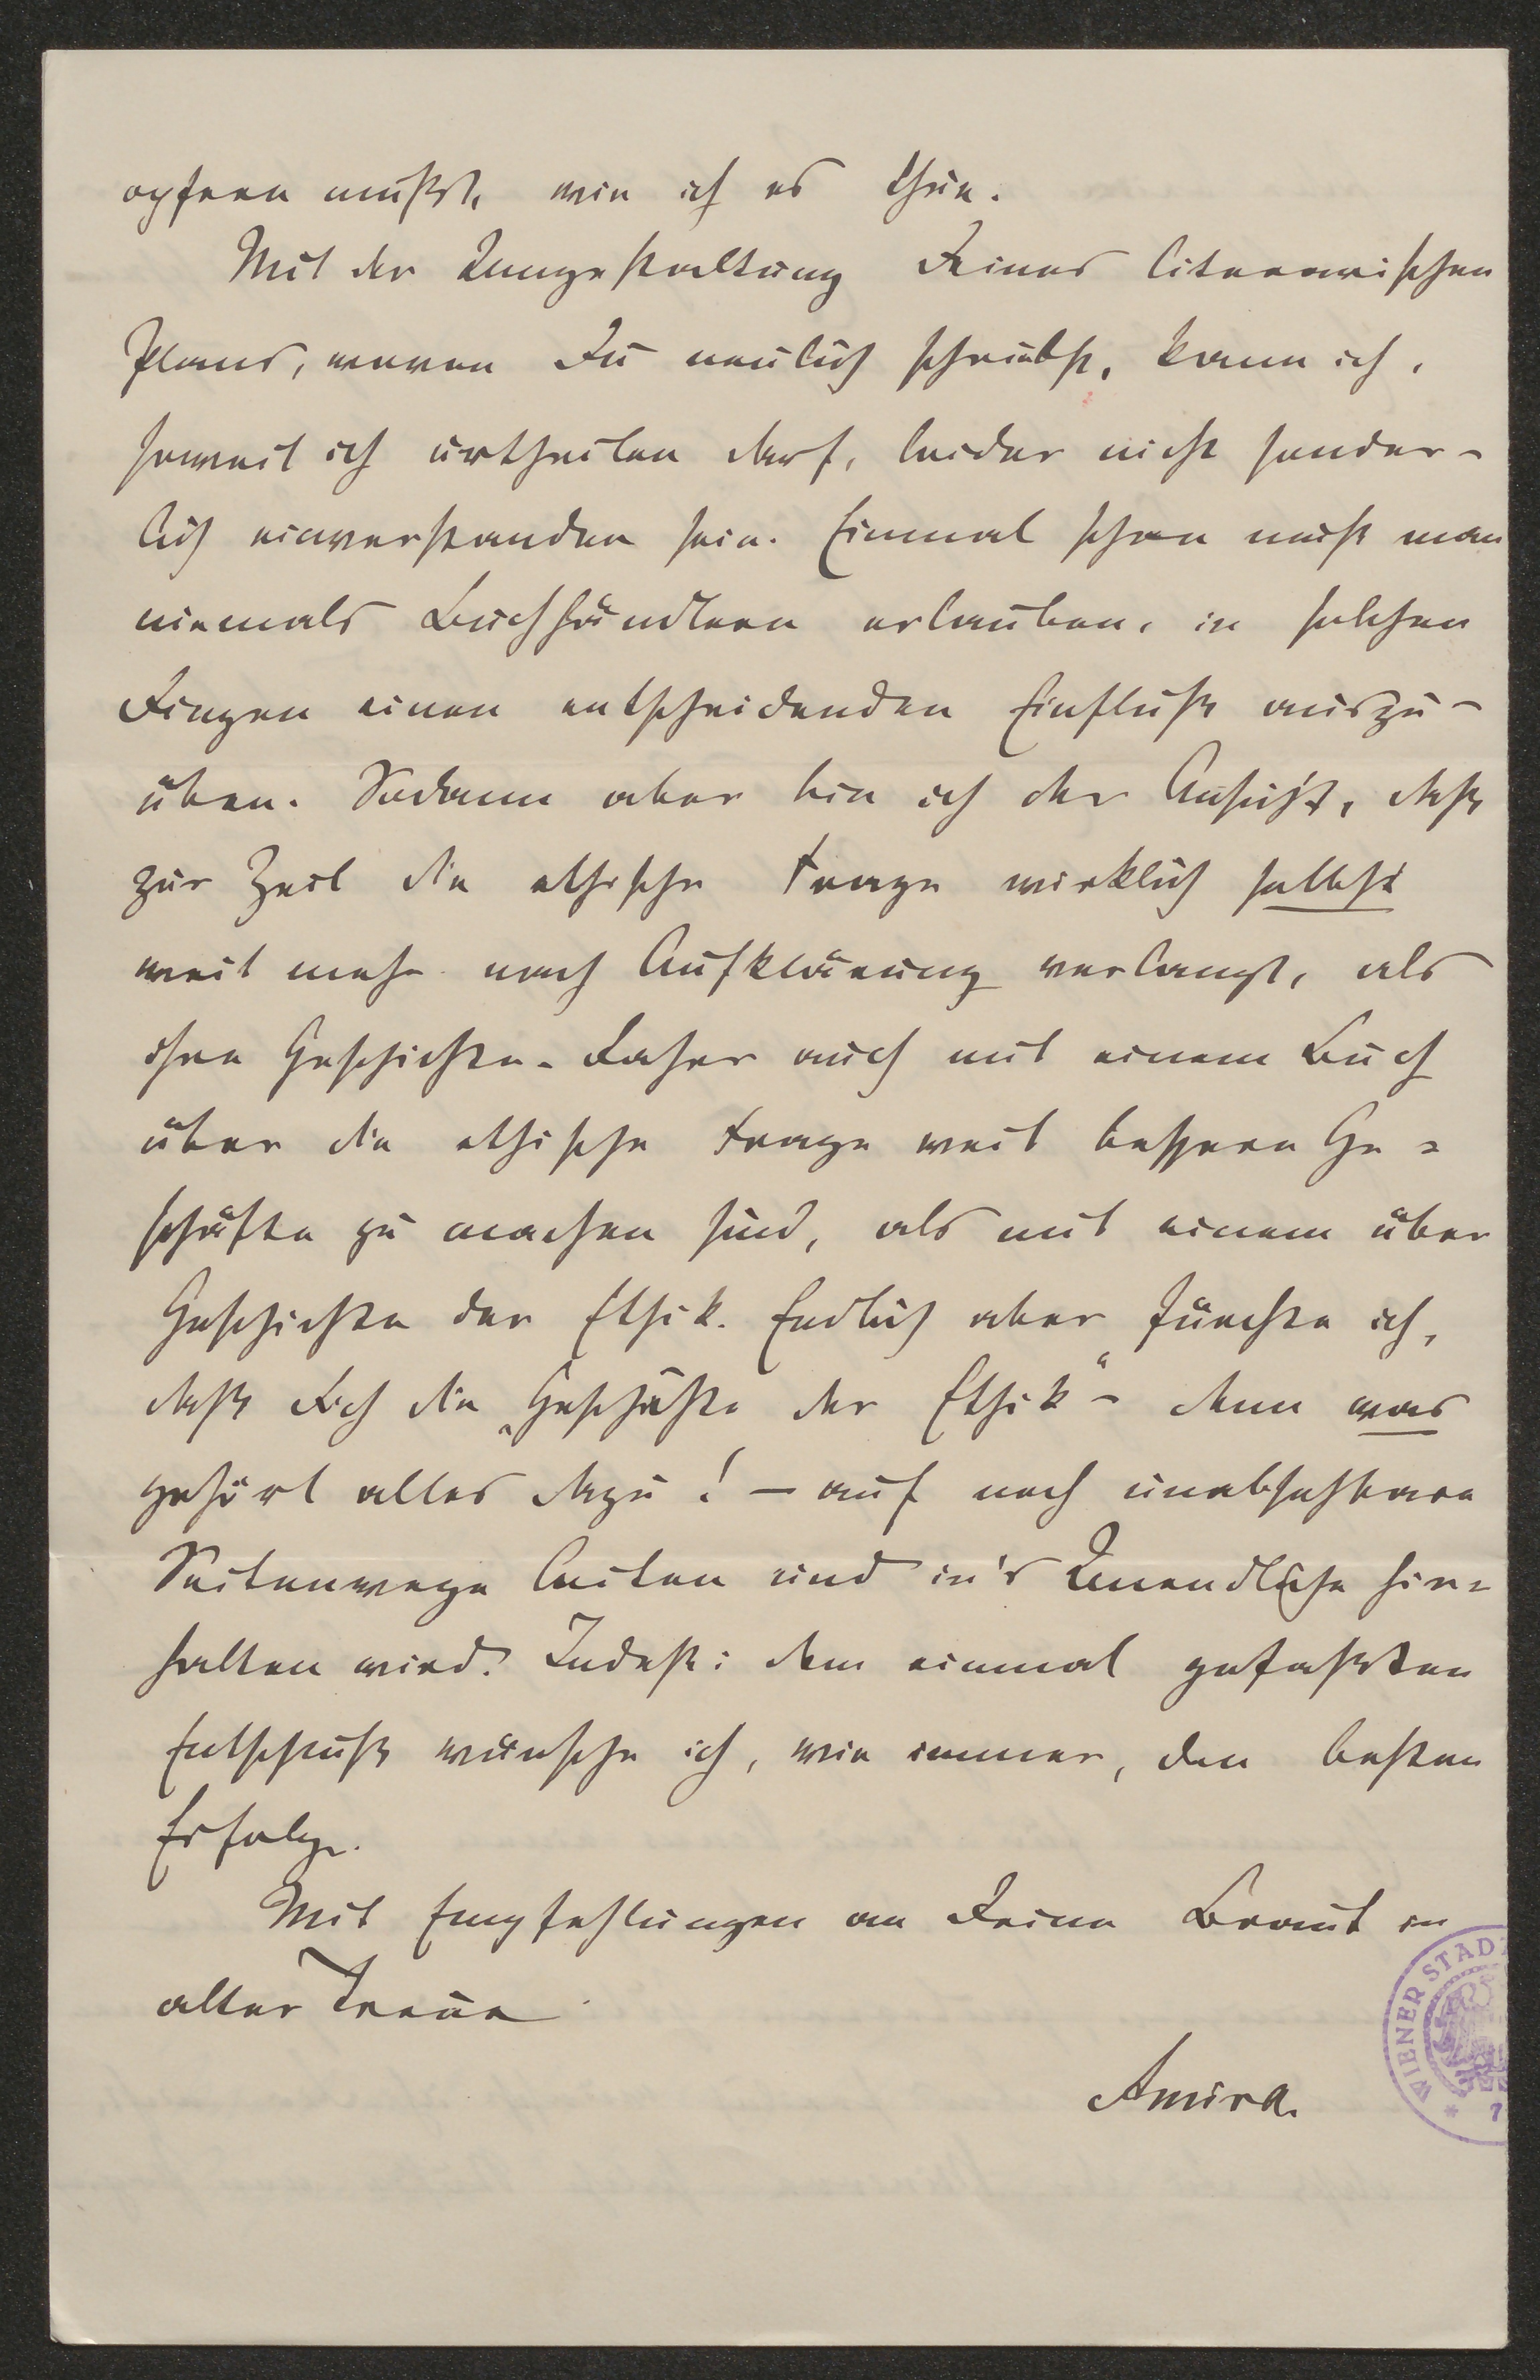 opfern mußt, wie ich es thue.
Mit der Umgestaltung Deines literarischen
Plans, wovon Du neulich schriebst, kann ich,
soweit ich urtheilen darf, leider nicht sonder-
lich einverstanden sein. Einmal schon muß man
niemals Buchhändlern erlauben, in solchen
Dingen einen entscheidenden Einfluß auszu-
üben. Sodann aber bin ich der Ansicht, daß
zur Zeit die ethische Frage wirklich selbst
weit mehr nach Aufklärung verlangt, als
ihre Geschichte. Daher auch mit einem Buch
über die ethische Frage weit bessere Ge-
schäfte zu machen sind, als mit einem über
Geschichte der Ethik. Endlich aber fürchte ich,
daß Dich die „Geschichte der Ethik“ – denn was
gehört alles dazu! – auf noch unabsehbare
Seitenwege leiten und in's Unendliche hin-
halten wird. Indeß: dem einmal gefaßten
Entschluß wünsche ich, wie immer, den besten
Erfolg.
Mit Empfehlungen an Deine Braut in
alter Treue
Amira.
WIENER STAD